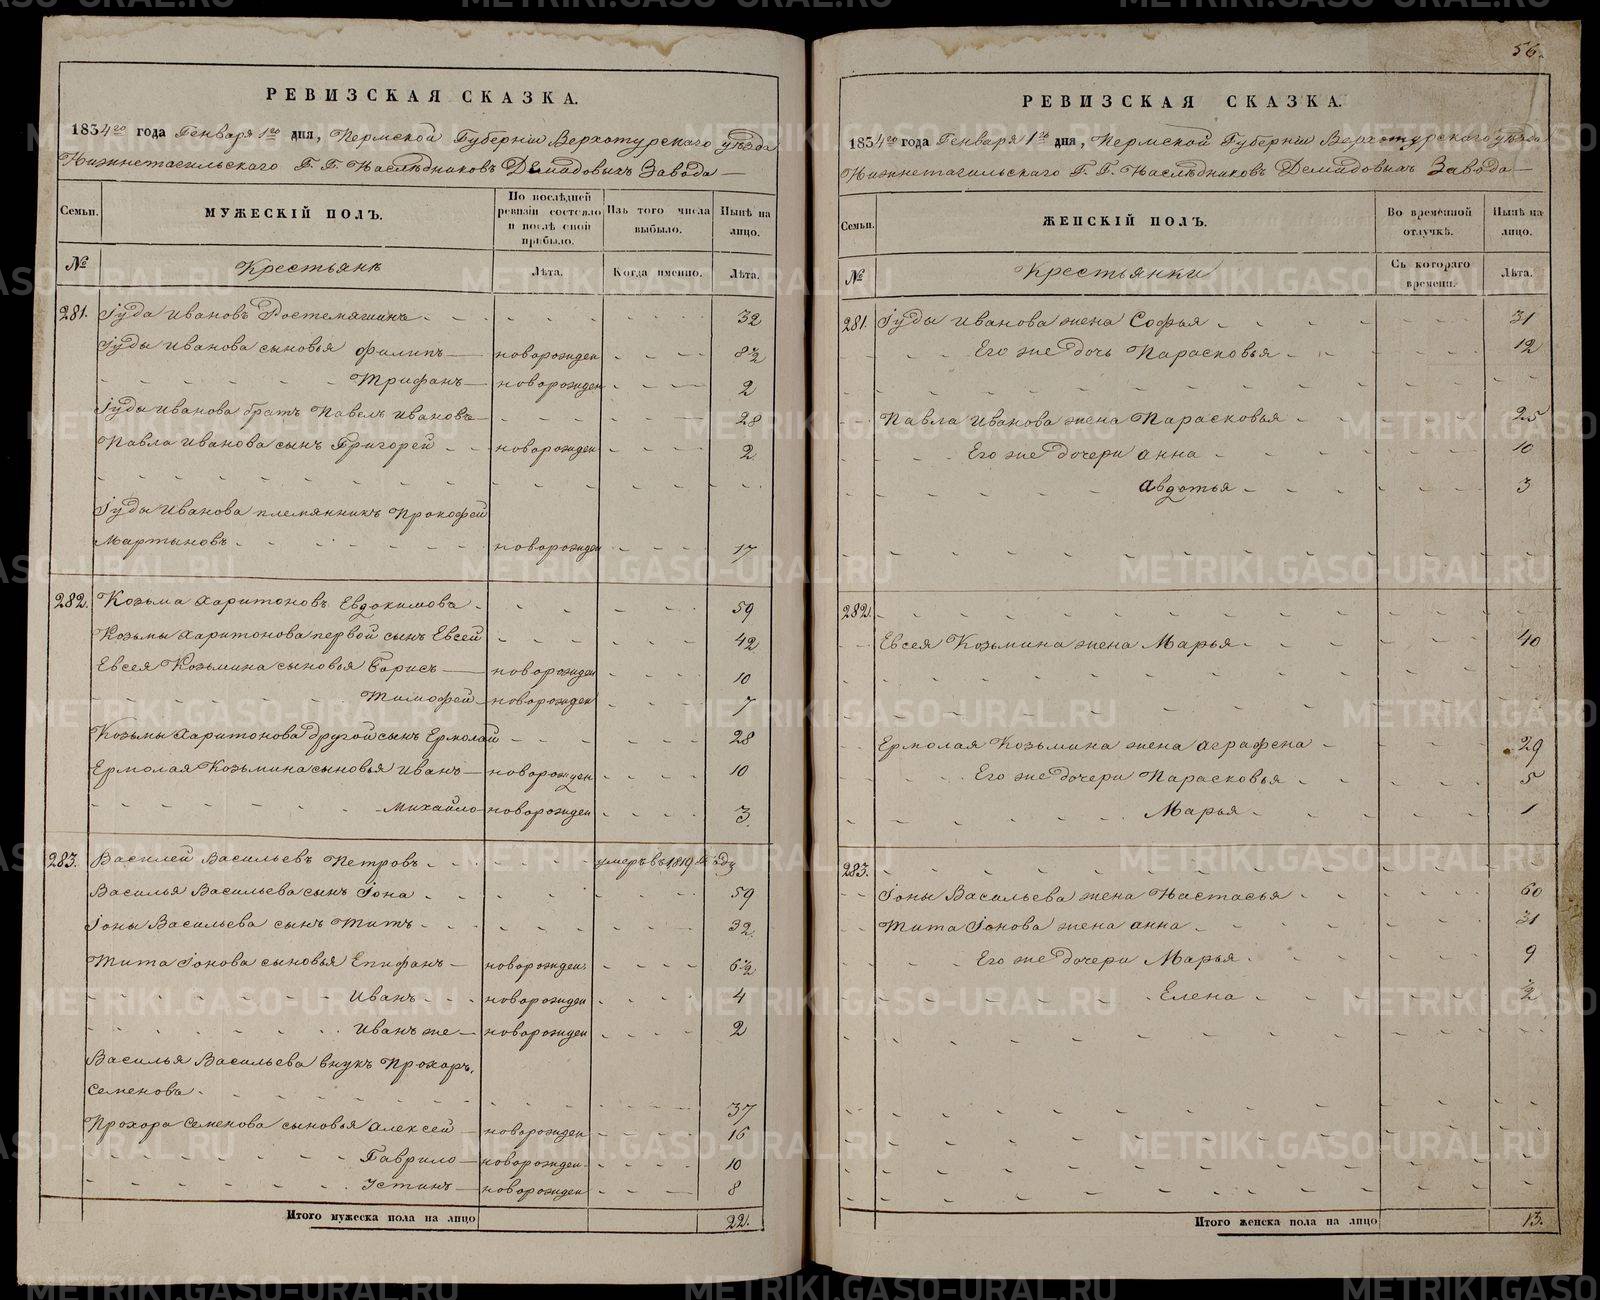 РЕВИЗСКАЯ СКАЗКА.
1834го года Генваря 1го дня, Пермской Губернiи Верхотурского уѣзда
Нижнетагильского Г. Г. Наслѣдниковъ Демидовыхъ Завода
Семьи.
МУЖЕСКІЙ ПОЛЪ.
По послѣдней ревизіи состояло и послѣ оной прибыло.
Изъ того числа выбыло.
Нынѣ на лицо.
№
Крестьянъ
Лѣта.
Когда именно.
Лѣта.
281. Іуда Ивановъ 32
Іуды Иванова сыновья Филипъ новорожден 8½
Трифанъ новорожден 2
Іуды Иванова братъ Павелъ Ивановъ 28
Павла Иванова сынъ Григорей новорожден 2
Іуды Иванова племянникъ Прокофей
Мартыновъ новорожден 17
282. Козьма Харитоновъ Евдокимова 59
Козьмы Харитонова первой сынъ Евсей 42
Евсея Козьмина сыновья Борисъ новорожден 10
Тимофей новорожден 7
Козьмы Харитонова другой сынъ Ермолай 28
Ермолая Козьмина сыновья Иванъ новорожден 10
Михайло новорожден 3
283. Василей Васильевъ Петровъ умеръ въ 1819 году
Василья Васильева сынъ Іона 59
Іоны Васильева сынъ Титъ 32.
Тита Іонова сыновья Епифанъ новорожден. 6½
Иванъ новорожден 4
Иванъ же новорожден 2
Василья Васильева внукъ Прохоръ
Семеновъ 37
Прохора Семенова сыновья Алексей новорожден 16
Гаврило новорожден 10
Устинъ новорожден 8
Итого мужеска пола на лицо 22.
56.
РЕВИЗСКАЯ СКАЗКА.
1834го года Генваря 1го дня, Пермской Губернiи Верхотурского уѣзда
Нижнетагильского Г. Г. Наслѣдниковъ Демидовыхъ Завода
Семьи.
ЖЕНСКІЙ ПОЛЪ.
Во временной отлучкѣ.
Нынѣ на лицо.
№
Крестьянки
Съ котораго времени.
Лѣта.
281. Іуды Иванова жена Софья 31
Его же дочь Парасковья 12
Павла Иванова жена Парасковья 25
Его же дочери Анна 10
Авдотья 3
282.
Евсея Козьмина жена Марья 40
Ермолая Козьмина жена Аграфена 29
Его же дочери Парасковья 5
Марья 1
283.
Іоны Васильева жена Настасья 60
Тита Іонова жена Анна 31
Его же дочери Марья 9
Елена ½
Итого женска пола на лицо 13.
METRIKI.GASO-URAL.RU